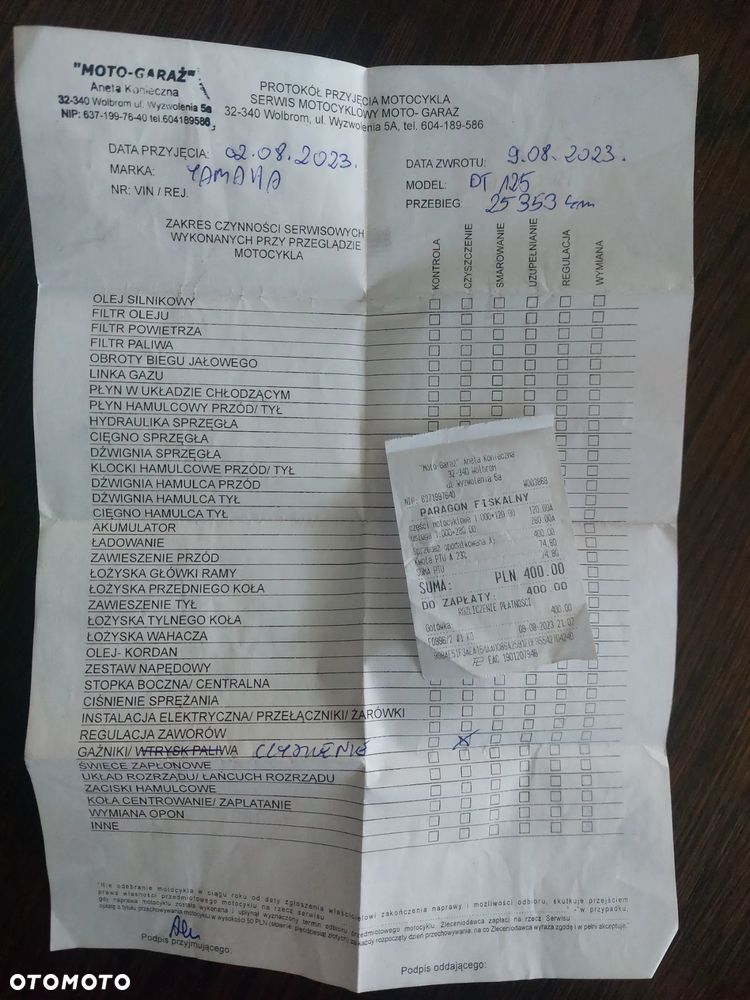 "MOTO-GARAŻ"
Aneta Konieczna
32-340 Wolbrom ul. Wyzwolenia 5a
NIP: 637-199-76-40 tel.604189586
PROTOKÓŁ PRZYJĘCIA MOTOCYKLA
SERWIS MOTOCYKLOWY MOTO- GARAŻ
32-340 Wolbrom, ul. Wyzwolenia 5A, tel. 604-189-586
DATA PRZYJĘCIA: 02.08.2023.
DATA ZWROTU: 9.08.2023.
MARKA: YAMAHA
MODEL: DT 125
NR: VIN / REJ.
PRZEBIEG: 25353 km
ZAKRES CZYNNOŚCI SERWISOWYCH
WYKONANYCH PRZY PRZEGLĄDZIE
MOTOCYKLA
KONTROLA
CZYSZCZENIE
SMAROWANIE
UZUPEŁNIANIE
REGULACJA
WYMIANA
OLEJ SILNIKOWY
FILTR OLEJU
FILTR POWIETRZA
FILTR PALIWA
OBROTY BIEGU JAŁOWEGO
LINKA GAZU
PŁYN W UKŁADZIE CHŁODZĄCYM
PŁYN HAMULCOWY PRZÓD/ TYŁ
HYDRAULIKA SPRZĘGŁA
CIĘGNO SPRZĘGŁA
DŹWIGNIA SPRZĘGŁA
KLOCKI HAMULCOWE PRZÓD/ TYŁ
DŹWIGNIA HAMULCA PRZÓD
DŹWIGNIA HAMULCA TYŁ
CIĘGNO HAMULCA TYŁ
AKUMULATOR
ŁADOWANIE
ZAWIESZENIE PRZÓD
ŁOŻYSKA GŁÓWKI RAMY
ŁOŻYSKA PRZEDNIEGO KOŁA
ZAWIESZENIE TYŁ
ŁOŻYSKA TYLNEGO KOŁA
ŁOŻYSKA WAHACZA
OLEJ- KORDAN
ZESTAW NAPĘDOWY
STOPKA BOCZNA/ CENTRALNA
CIŚNIENIE SPRĘŻANIA
INSTALACJA ELEKTRYCZNA/ PRZEŁĄCZNIKI/ ŻARÓWKI
REGULACJA ZAWORÓW
GAŹNIKI/ WTRYSK PALIWA
ŚWIECE ZAPŁONOWE
UKŁAD ROZRZĄDU/ ŁAŃCUCH ROZRZĄDU
ZACISKI HAMULCOWE
KOŁA CENTROWANIE/ ZAPLATANIE
WYMIANA OPON
INNE
"Moto-Garaż" Aneta Konieczna
32-340 Wolbrom
ul Wyzwolenia 5a
NIP: 6371997640
PARAGON FISKALNY
części motocyklowe 1.000×120.00 120.00A
usługa 1.000×280.00 280.00A
Sprzedaż opodatkowana A: 400.00
Kwota PTU A 23% 74.80
SUMA PTU 74.80
SUMA: PLN 400.00
DO ZAPŁATY: 400.00
ROZLICZENIE PŁATNOŚCI
Gotówka: 400.00
09-08-2023 21:07
EAC 1901207946
"Nie odebranie motocykla w ciągu roku od daty zgłoszenia właścicielowi zakończenia naprawy i możliwości odbioru, skutkuje przejściem
prawa własności przedmiotowego motocykla na rzecz serwisu
gdy naprawa motocykla została wykonana i upłynął wyznaczony termin odbioru przedmiotowego motocykla. Zleceniodawca zapłaci na rzecz Serwisu
Podpis przyjmującego:
Podpis oddającego:
OTOMOTO